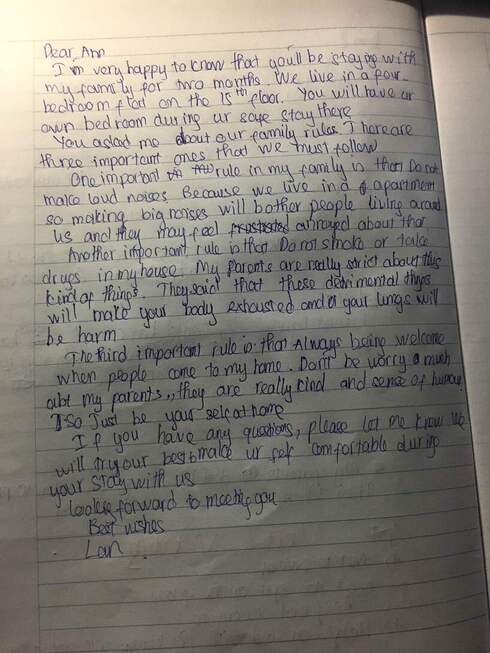 Dear Ann
I'm very happy to know that you'll be staying with
my family for two months. We live in a four-
bedroom flat on the 15th floor. You will have ur
own bedroom during ur stay there
You asked me about our family rules. There are
three important ones that we must follow
One important rule in my family is that Do not
make loud noises Because we live in a apartment
so making big noises will bother people living around
us and they may feel frustrated annoyed about that
Another important rule is that Do not smoke or take
drugs in my house. My parents are really strict about this
kind of things. They said that these detrimental things
will make your body exhausted and your lungs will
be harm
The third important rule is that Always being welcome
when people come to my home. Don't be worry much
abt my parents, they are really kind and sence of humour
so Just be your self at home
If you have any questions, please let me know. We
will try our best to make ur self comfortable during
your stay with us
Looking forward to meeting you
Best wishes
Lan